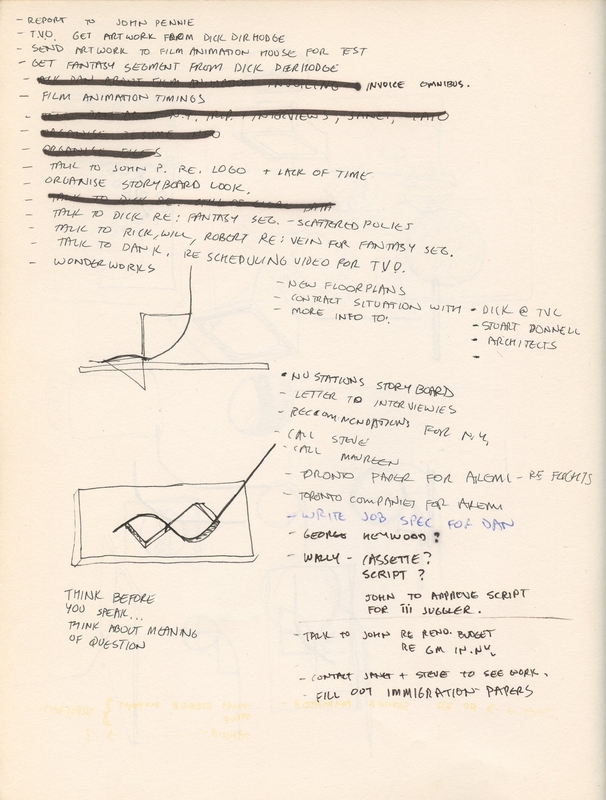 - REPORT TO JOHN PENNIE
- T.V.O. GET ARTWORK FROM DICK DIRHODGE
- SEND ARTWORK TO FILM ANIMATION HOUSE FOR TEST
- GET FANTASY SEGMENT FROM DICK DIERHODGE
- ASK DAN ABOUT FILM ANIMATION INVOICING INVOICE OMNIBUS.
- FILM ANIMATION TIMINGS
- N.Y. INTERVIEWS, JANET,
- ORGANISE RESUME
- ORGANISE FILES
- TALK TO JOHN P. RE. LOGO + LACK OF TIME
- ORGANISE STORYBOARD LOOK.
- TALK TO DICK RE:
- TALK TO DICK RE: FANTASY SEG. - SCATTERED POLIES
- TALK TO RICK, WILL, ROBERT RE: VEIN FOR FANTASY SEG.
- TALK TO DAN K. RE SCHEDULING VIDEO FOR T.V.O.
- WONDERWORKS
- NEW FLOORPLANS
- CONTRACT SITUATION WITH • DICK @ TVC
- MORE INFO TO: • STUART DONNELL
• ARCHITECTS
•
• NU STATIONS STORYBOARD
- LETTER TO INTERVIEWIES
- RECCOMMENDATIONS FOR N.Y.
- CALL STEVE
- CALL MAUREEN
- TORONTO PAPER FOR AKEMI - RE FLIGHTS
- TORONTO COMPANIES FOR AKEMI
- WRITE JOB SPEC FOR DAN
- GEORGE HEYWOOD?
- WALLY - CASSETTE?
SCRIPT?
JOHN TO APPROVE SCRIPT
FOR JUGGLER.
THINK BEFORE
YOU SPEAK...
THINK ABOUT MEANING
OF QUESTION
- TALK TO JOHN RE RENO. BUDGET
RE GM IN NY.
- CONTACT JANET + STEVE TO SEE WORK.
- FILL OUT IMMIGRATION PAPERS